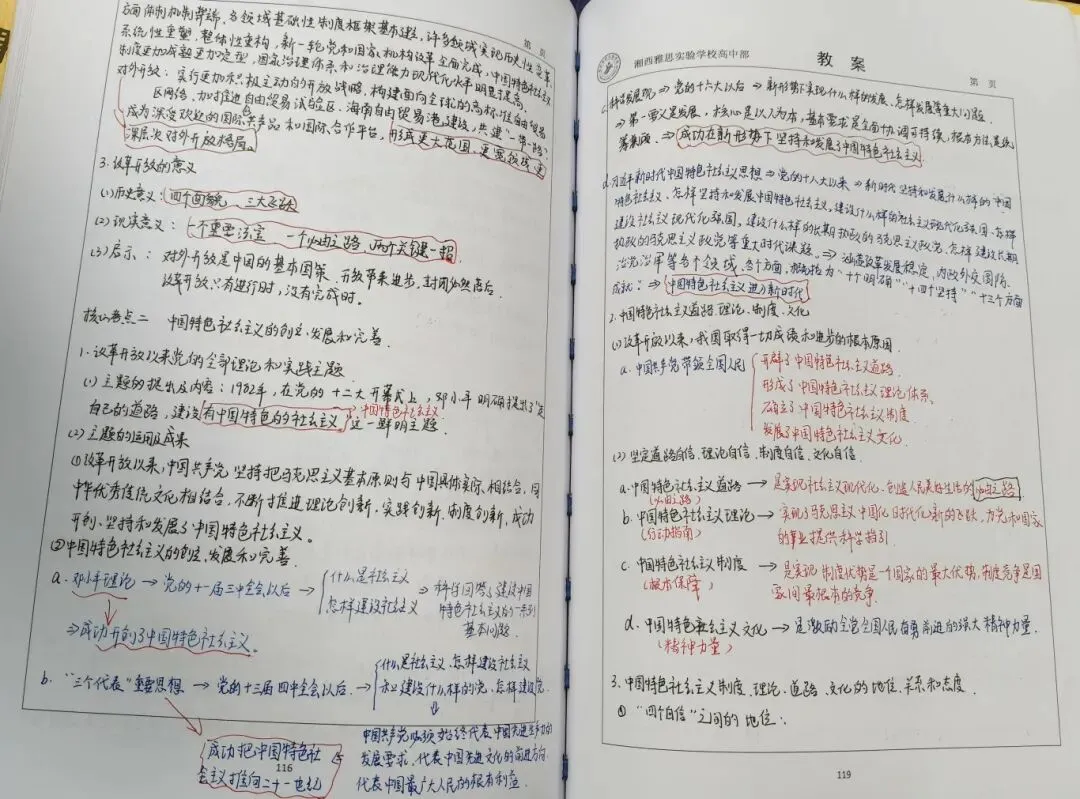 第 页
方面体制机制弊端，各领域基础性制度框架基本建立，许多领域实现历史性变革、
系统性重塑，整体性重构，新一轮党和国家机构改革全面完成，中国特色社会主义
制度更加成熟更加定型，国家治理体系和治理能力现代化水平明显提高。
对外开放：实行更加积极主动的开放战略，构建面向全球的高标准自由贸易
区网络，加快推进自由贸易试验区、海南自由贸易港建设，共建"一带一路"
成为深受欢迎的国际公共产品和国际合作平台，形成更大范围、更宽领域、更
深层次对外开放格局。
3. 改革开放的意义
(1) 历史意义：四个面貌、三大飞跃
(2) 现实意义：一个重要法宝 一个必由之路 两个关键一招
(3) 启示：对外开放是中国的基本国策、开放带来进步，封闭必然落后
改革开放只有进行时，没有完成时。
核心考点二 中国特色社会主义的创立、发展和完善
1. 改革开放以来党的全部理论和实践主题
(1) 主题的提出及内容：1982年，在党的十二大开幕式上，邓小平明确提出了"走
自己的道路，建设有中国特色的社会主义"这一鲜明主题
中国特色社会主义
(2) 主题的运用及成果
①改革开放以来，中国共产党坚持把马克思主义基本原则与中国具体实际相结合，同
中华优秀传统文化相结合，不断推进理论创新，实践创新，制度创新，成功
开创、坚持和发展了中国特色社会主义。
②中国特色社会主义的创立、发展和完善
a. 邓小平理论→党的十一届三中全会以后→ 什么是社会主义
怎样建设社会主义
⇒科学回答了建设中国
特色社会主义的一系列
基本问题
⇒成功开创了中国特色社会主义。
b. "三个代表"重要思想→党的十三届四中全会以后→ 什么是社会主义、怎样建设社会主义
和建设什么样的党、怎样建设党
中国共产党必须始终代表中国先进生产力的
发展要求、代表中国先进文化的前进方向
代表中国最广大人民的根本利益
成功把中国特色社
会主义推向二十一世纪
116
湘西雅思实验学校高中部
教案
第 页
c. 科学发展观⇒党的十六大以后⇒新形势下实现什么样的发展、怎样发展等重大问题
⇒第一要义是发展，核心是以人为本，基本要求是全面协调可持续，根本方法是统
筹兼顾⇒成功在新形势下坚持和发展了中国特色社会主义
d. 习近平新时代中国特色社会主义思想⇒党的十八大以来⇒新时代坚持和发展什么样的中国
特色社会主义、怎样坚持和发展中国特色社会主义，建设什么样的社会主义现代化强国、怎样
建设社会主义现代化强国，建设什么样的长期执政的马克思主义政党、怎样建设长期
执政的马克思主义政党等重大时代课题。⇒涵盖改革发展稳定，内政外交国防、
治党治军等各个领域、各个方面，概括为"十个明确""十四个坚持""十三个方面
成就：⇒中国特色社会主义进入新时代
2. 中国特色社会主义道路、理论、制度、文化
(1) 改革开放以来，我国取得一切成绩和进步的根本原因
a. 中国共产党带领全国人民 开辟了中国特色社会主义道路
形成了中国特色社会主义理论体系、
确立了中国特色社会主义制度
发展了中国特色社会主义文化
(2) 坚定道路自信、理论自信、制度自信、文化自信
a. 中国特色社会主义道路→是实现社会主义现代化、创造人民美好生活的必由之路
(必由之路)
b. 中国特色社会主义理论→实现了马克思主义中国化时代化新的飞跃，为党和国家
(行动指南) 的事业提供科学指引
c. 中国特色社会主义制度→是实现 制度优势是一个国家的最大优势，制度竞争是国
(根本保障) 家间最根本的竞争
d. 中国特色社会主义文化→是激励全党全国人民奋勇前进的强大精神力量
(精神力量)
3. 中国特色社会主义制度、理论、道路、文化的地位、关系和态度
① "四个自信"之间的地位：
119